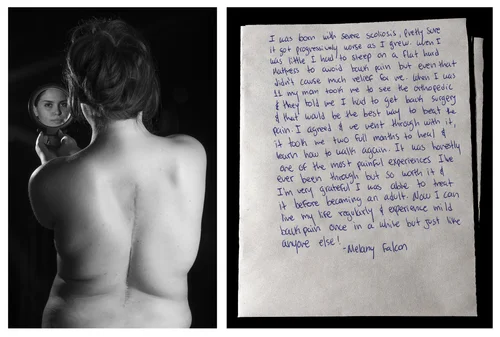 I was born with severe scoliosis, pretty sure
it got progressively worse as I grew. When I
was little I had to sleep on a flat hard
mattress to avoid back pain but even that
didn't cause much relief for me. When I was
11 my mom took me to see the orthopedic
& they told me I had to get back surgery
& that would be the best way to beat the
pain. I agreed & we went through with it,
it took me two full months to heal &
learn how to walk again. It was honestly
one of the most painful experiences I've
ever been through but so worth it &
I'm very grateful I was able to treat
it before becoming an adult. Now I can
live my life regularly & experience mild
back pain once in a while but just like
anyone else!
-Melany Falcon